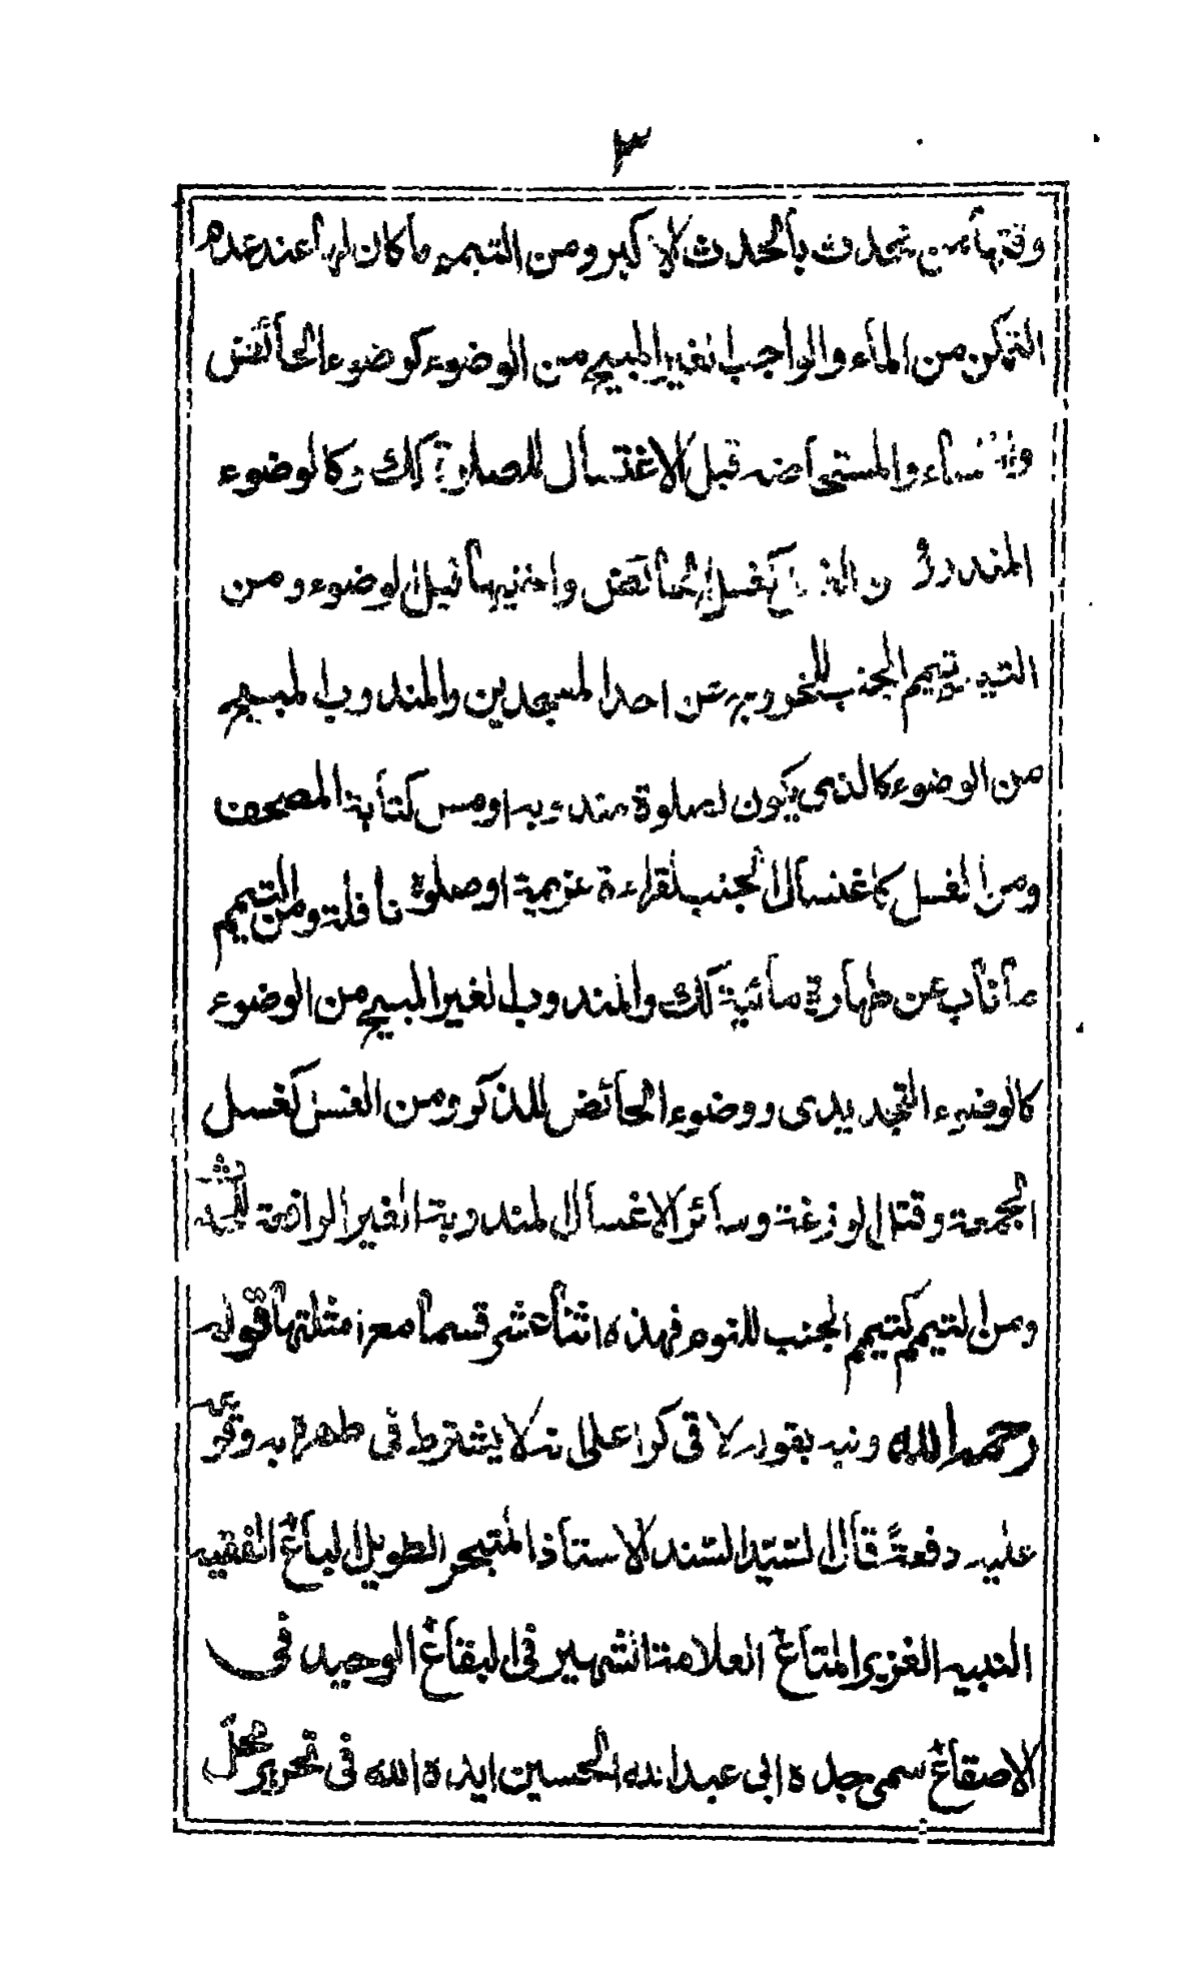 ٣
وقتها من تحدث بالحدث الاكبر ومن التيمم ما كان لها عند عدم
التمكن من الماء والواجب الغير المبيح من الوضوء كوضوء الحائض
والنفساء والمستحاضه قبل الاغتسال للصلوة كذلك وكالوضوء
المنذور ومن الغسل كغسل الحائض واختيها قبل الوضوء ومن
التيمم تيمم الجنب للخروج عن احد المسجدين والمندوب المبيح
من الوضوء كالذى يكون لصلوة مندوبه او مس كتابة المصحف
ومن الغسل كاغتسال الجنب لقراءة عزيمة او صلوة نافلة ومن التيمم
ما ناب عن طهارة مائية كذلك والمندوب الغير المبيح من الوضوء
كالوضوء التجديدى ووضوء الحائض للذكر ومن الغسل كغسل
الجمعة وقتل الوزغة وسائر الاغسال المندوبة الغير الرافعة للحدث
ومن التيمم كتيمم الجنب للنوم فهذه اثنا عشر قسما مع امثلتها قوله
رحمه الله ونبه بقوله لاقى كرا على انه لا يشترط فى طهره به وقوعه
عليه دفعةً قال السيّد السند الاستاذ المتبحر الطويل الباع الفقيه
النبيه الغزير المتاع العلامة الشهير فى البقاع الوحيد فى
الاصقاع سمى جده ابى عبد الله الحسين ايده الله فى تحرير محل